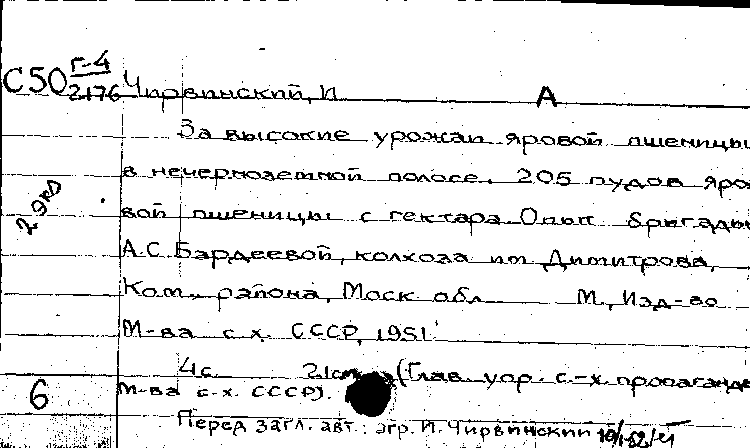 С50 Г-4
2176 Чирвинский, И. А
За высокие урожаи яровой пшеницы
в нечерноземной полосе. 205 пудов яро-
вой пшеницы с гектара. Опыт бригады
2 экз
А.С. Бардеевой, колхоза им Димитрова,
Ком. района, Моск обл. М., Изд-во
М-ва с.х. СССР, 1951.
4 с. 21 см (Глав. упр. с.-х. пропаганды
6 М-ва с-х. СССР).
Перед загл. авт.: агр. И. Чирвинский